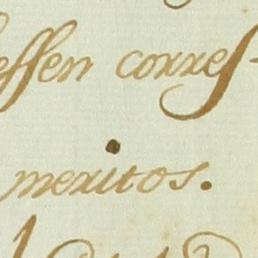 essen corres-
meritos.